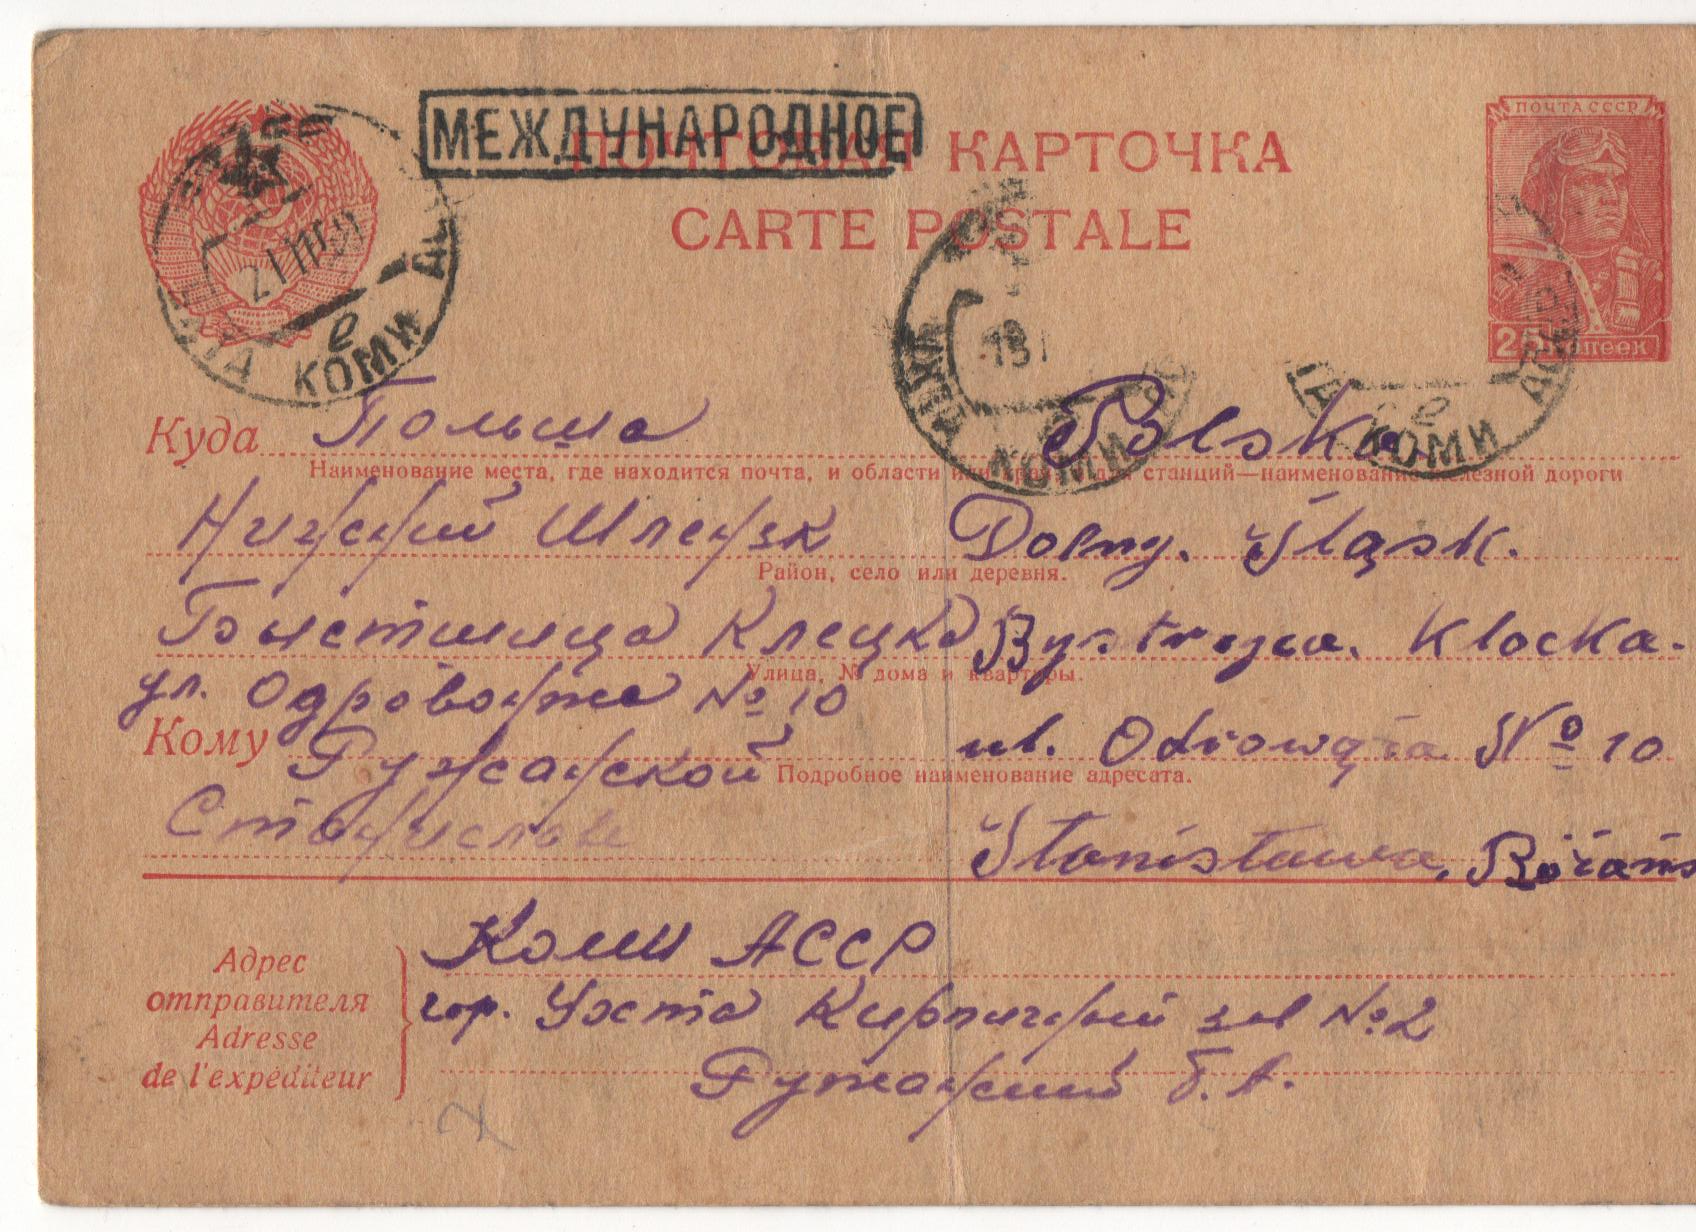 МЕЖДУНАРОДНОЕ
ПОЧТОВАЯ КАРТОЧКА
CARTE POSTALE
ПОЧТА СССР
25 копеек
УХТА КОМИ АССР
21 III
е
КОМИ
КОМИ АССР
е
Куда Польша Polska.
Наименование места, где находится почта, и области или края, а для станций—наименование железной дороги
Нижний Шлензк Dolny. Śląsk.
Район, село или деревня.
Быстшица Клецка Bystrzyca. Klocka.
Улица, № дома и квартиры.
ул. Одровонжа № 10
ul. Odrowąża № 10
Кому Ружанской
Подробное наименование адресата.
Станиславе
Stanisława. Różańs
Адрес
отправителя
Adresse
de l'expéditeur
Коми АССР
гор. Ухта Кирпичный зав №2
Ружанский Б. А.